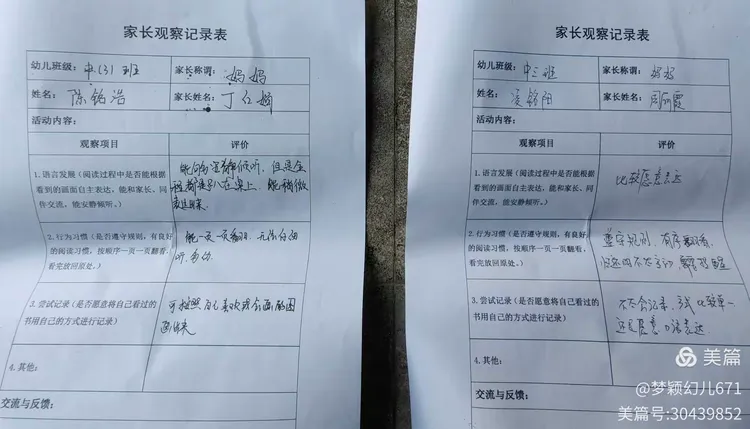 家长观察记录表
幼儿班级: 中(3)班 家长称谓: 妈妈
姓名: 陈铭浩 家长姓名: 丁仁娟
活动内容:
观察项目 评价
1.语言发展(阅读过程中是否能根据
看到的画面自主表达, 能和家长、同
伴交流, 能安静倾听。)
2.行为习惯(是否遵守规则, 有良好
的阅读习惯, 按顺序一页一页翻看,
看完放回原处。)
能一页一页翻
3.尝试记录(是否愿意将自己看过的
书用自己的方式进行记录)
可按照自己喜欢
画下来
4.其他:
交流与反馈:
家长观察记录表
幼儿班级: 中三班 家长称谓: 妈妈
姓名: 凌铭阳 家长姓名: 周丽霞
活动内容:
观察项目 评价
1.语言发展(阅读过程中是否能根据
看到的画面自主表达, 能和家长、同
伴交流, 能安静倾听。)
比较愿意表达
2.行为习惯(是否遵守规则, 有良好
的阅读习惯, 按顺序一页一页翻看,
看完放回原处。)
遵守规则, 有序翻看,
需要提醒
3.尝试记录(是否愿意将自己看过的
书用自己的方式进行记录)
不太会记录, 比较单一
还是愿意口语表达
4.其他:
交流与反馈:
美篇
@梦颖幼儿671
美篇号:30439852